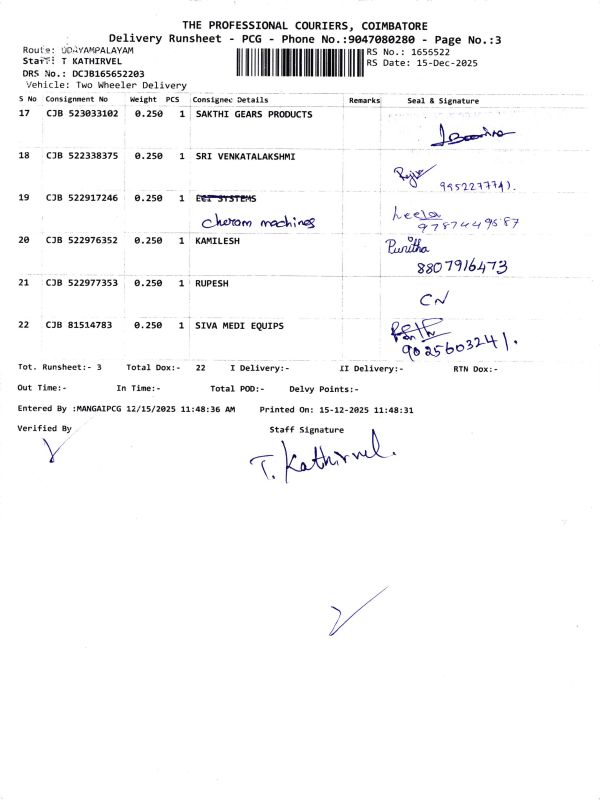 THE PROFESSIONAL COURIERS, COIMBATORE
Delivery Runsheet - PCG - Phone No.:9047080280 - Page No.:3
Route: UDAYAMPALAYAM
RS No.: 1656522
Staff: T KATHIRVEL
RS Date: 15-Dec-2025
DRS No.: DCJB165652203
Vehicle: Two Wheeler Delivery
S No Consignment No Weight PCS Consignee Details Remarks Seal & Signature
17 CJB 523033102 0.250 1 SAKTHI GEARS PRODUCTS
18 CJB 522338375 0.250 1 SRI VENKATALAKSHMI
19 CJB 522917246 0.250 1 ECI SYSTEMS Leela
cheram machines 9787449587
20 CJB 522976352 0.250 1 KAMILESH Punitha
8807916473
21 CJB 522977353 0.250 1 RUPESH
CN
22 CJB 81514783 0.250 1 SIVA MEDI EQUIPS
9025603241.
Tot. Runsheet:- 3 Total Dox:- 22 I Delivery:- II Delivery:- RTN Dox:-
Out Time:- In Time:- Total POD:- Delvy Points:-
Entered By :MANGAIPCG 12/15/2025 11:48:36 AM Printed On: 15-12-2025 11:48:31
Verified By Staff Signature
T. Kathirvel.